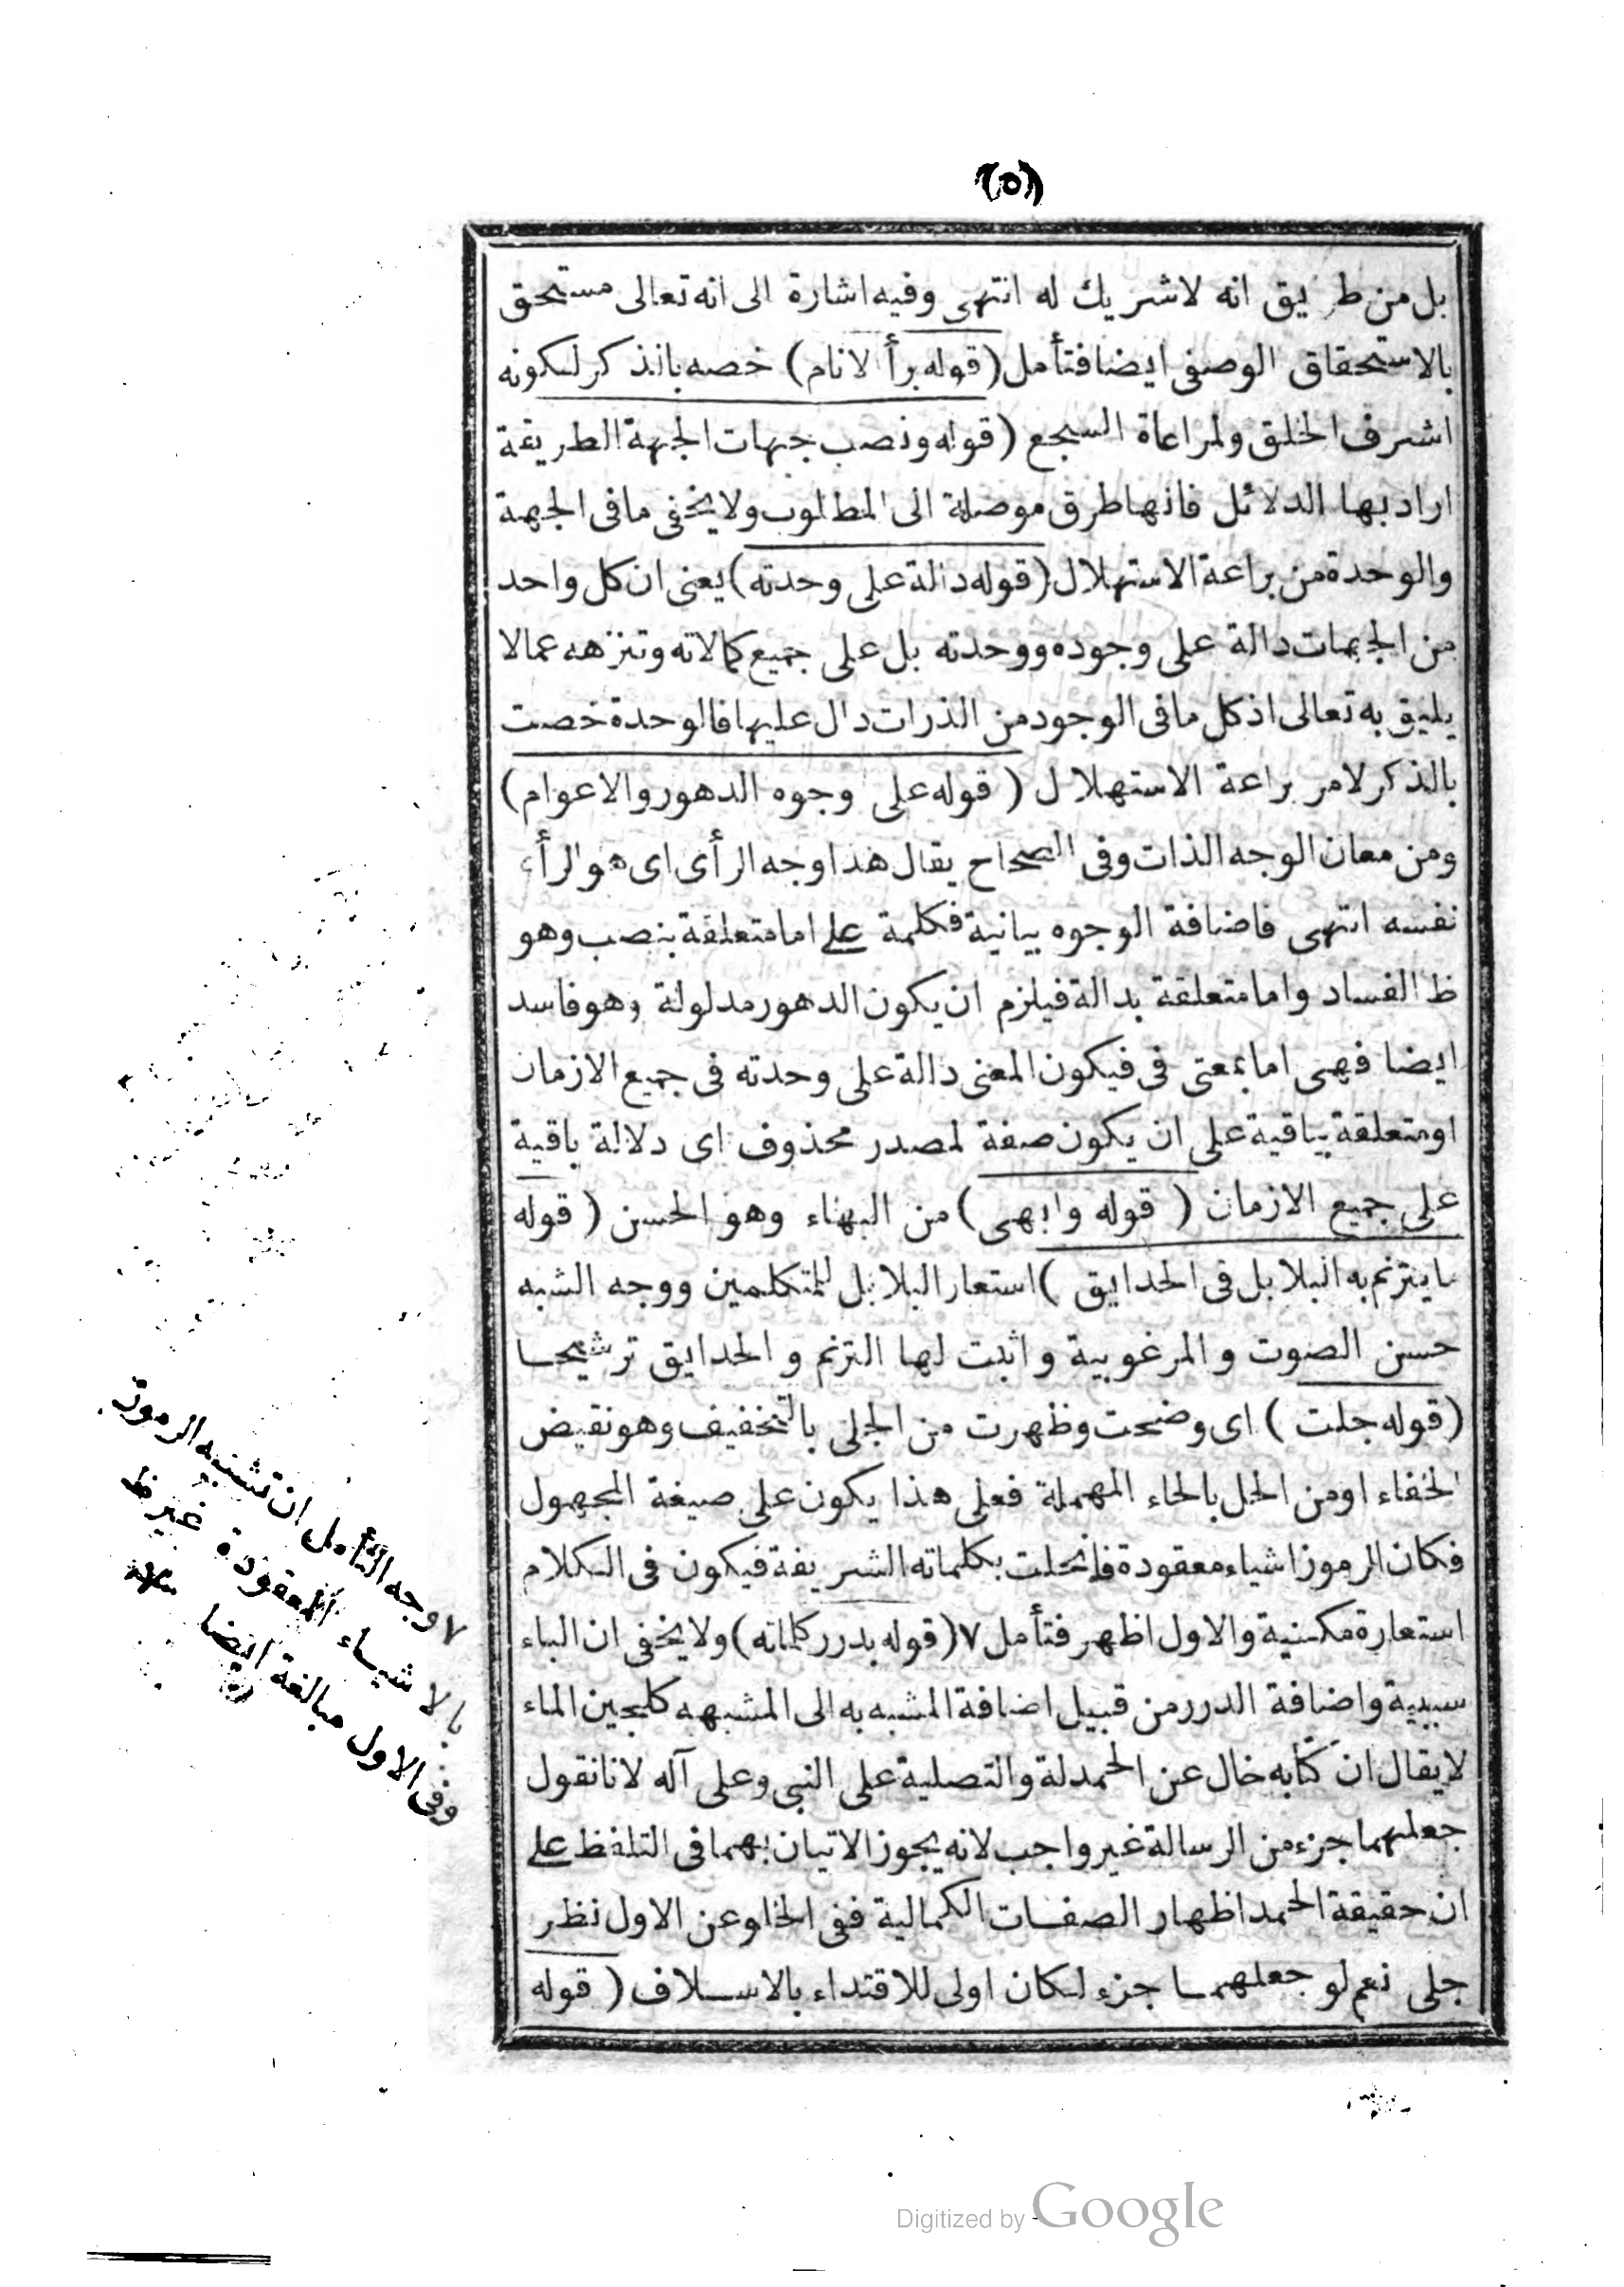 (٥)
بل من طريق انه لا شريك له انتهى وفيه اشارة الى انه تعالى مستحق
بالاستحقاق الوصفى ايضا فتأمل (قوله برأ الانام) خصه بالذكر لكونه
اشرف الخلق ولمراعاة السجع (قوله ونصب جهات الجهة الطريقة
اراد بها الدلائل فانها طرق موصلة الى المطلوب ولا يخفى ما فى الجهة
والوحدة من براعة الاستهلال (قوله دالة على وحدته) يعنى ان كل واحد
من الجهات دالة على وجوده ووحدته بل على جميع كمالاته وتنزهه عما لا
يليق به تعالى اذ كل ما فى الوجود من الذرات دال عليها فالوحدة خصت
بالذكر لامر براعة الاستهلال (قوله على وجوه الدهور والاعوام)
ومن معان الوجه الذات وفى الصحاح يقال هذا وجه الرأى اى هو الرأى
نفسه انتهى فاضافة الوجوه بيانية فكلمة على اما متعلقة بنصب وهو
ظ الفساد واما متعلقة بدالة فيلزم ان يكون الدهور مدلولة وهو فاسد
ايضا فهى اما بمعنى فى فيكون المعنى دالة على وحدته فى جميع الازمان
او متعلقة بباقية على ان يكون صفة لمصدر محذوف اى دلالة باقية
على جميع الازمان (قوله وابهى) من البهاء وهو الحسن (قوله
ما يترنم به البلابل فى الحدايق) استعار البلابل للمتكلمين ووجه الشبه
حسن الصوت والمرغوبية واثبت لها الترنم والحدايق ترشيحا
(قوله جلت) اى وضحت وظهرت من الجلى بالتخفيف وهو نقيض
الخفاء او من الحل بالحاء المهملة فعلى هذا يكون على صيغة المجهول
فكان الرموز اشياء معقودة فانحلت بكلماته الشريفة فيكون فى الكلام
استعارة مكنية والاول اظهر فتأمل ٧ (قوله بدرر كلماته) ولا يخفى ان الباء
سببية واضافة الدرر من قبيل اضافة المشبه به الى المشبه كلجين الماء
لا يقال ان كتابه خال عن الحمدلة والتصلية على النبى وعلى آله لانا نقول
جعلهما جزء من الرسالة غير واجب لانه يجوز الاتيان بهما فى التلفظ على
ان حقيقة الحمد اظهار الصفات الكمالية ففى الخلو عن الاول نظر
جلى نعم لو جعلهما جزء لكان اولى للاقتداء بالاسلاف (قوله
٧ وجه التأمل ان تشبيه الرموز
بالاشياء المعقودة غير ظ
وفى الاول مبالغة ايضا منه
Digitized by Google